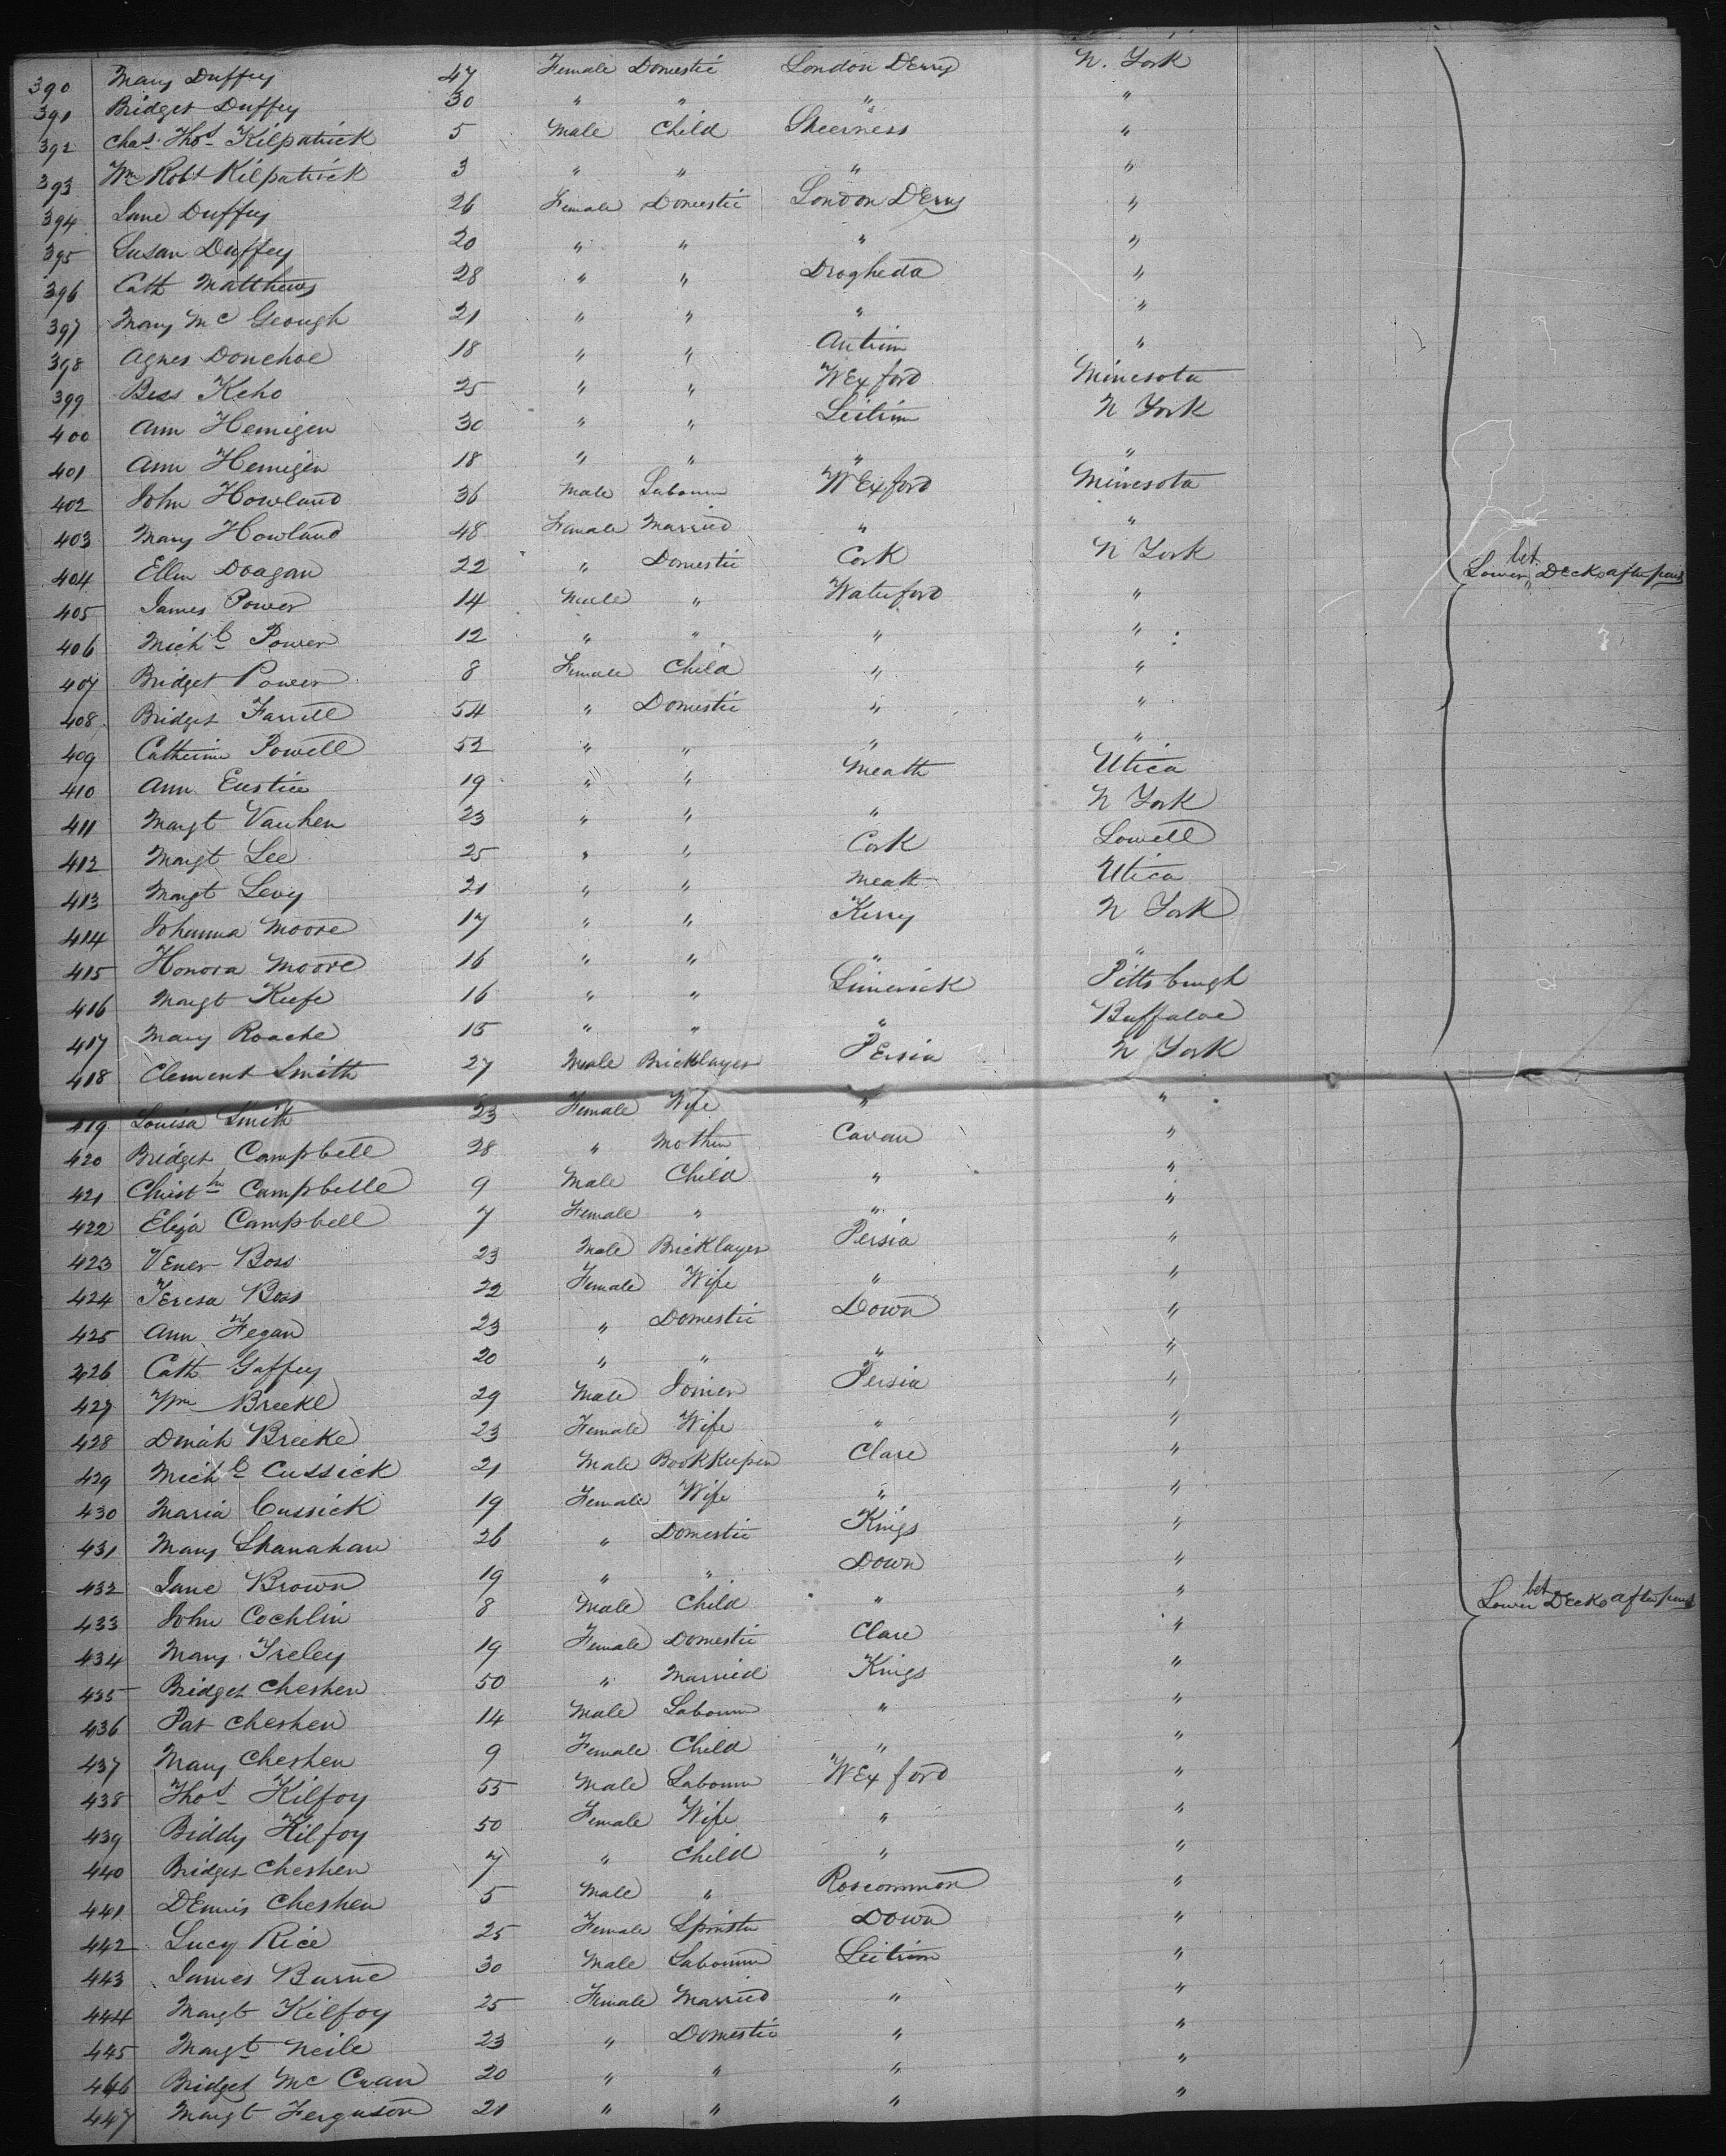 390 Mary Duffey 47 Female Domestic London Derry N. York
391 Bridget Duffey 30 " " " "
392 Chas. Thos Kilpatrick 5 Male Child Sheerness "
393 Wm Robt Kilpatrick 3 " " " "
394 Jane Duffey 26 Female Domestic London Derry "
395 Susan Duffey 20 " " " "
396 Cath Matthews 28 " " Drogheda "
397 Mary Mc Geough 21 " " " "
398 Agnes Donehoe 18 " " Antrim "
399 Bess Keho 25 " " Wexford Minesota
400 Ann Hemigen 30 " " Leitrim N York
401 Ann Hemigen 18 " " " "
402 John Howland 36 Male Labourer Wexford Minesota
403 Mary Howland 48 Female Married " "
404 Ellen Doagan 22 " Domestic Cork N York
Lower bet. Decks after part
405 James Power 14 Male " Waterford "
406 Michl Power 12 " " " "
407 Bridget Power 8 Female Child " "
408 Bridget Farrell 54 " Domestic " "
409 Catherine Powell 52 " " " "
410 Ann Eustice 19 " " Meath Utica
411 Margt Vauhen 23 " " " N York
412 Margt Lee 25 " " Cork Lowell
413 Margt Levy 21 " " Meath Utica
414 Johanna Moore 17 " " Kerry N York
415 Honora Moore 16 " " " "
416 Margt Keefe 16 " " Limerick Pittsburgh
417 Mary Roache 15 " " " Buffaloe
418 Clement Smith 27 Male Bricklayer Persia N York
419 Louisa Smith 23 Female Wife " "
420 Bridget Campbell 28 " Mother Cavan "
421 Christhr Campbelle 9 Male Child " "
422 Eliza Campbell 7 Female " " "
423 Vener Boss 23 Male Bricklayer Persia "
424 Teresa Boss 22 Female Wife " "
425 Ann Fegan 23 " Domestic Down "
426 Cath Gaffey 20 " " " "
427 Wm Breeke 29 Male Joiner Persia "
428 Dinah Breeke 23 Female Wife " "
429 Michl Cussick 21 Male Bookkeeper Clare "
430 Maria Cussick 19 Female Wife " "
431 Mary Shanahan 26 " Domestic Kings "
432 Jane Brown 19 " " Down "
433 John Cochlin 8 Male Child " "
Lower bet Decks after part
434 Mary Treley 19 Female Domestic Clare "
435 Bridget Cheshen 50 " Married Kings "
436 Pat Cheshen 14 Male Labourer " "
437 Mary Cheshen 9 Female Child " "
438 Thos Kilfoy 55 Male Labourer Wexford "
439 Biddy Kilfoy 50 Female Wife " "
440 Bridget Cheshen 7 " Child " "
441 Dennis Cheshen 5 Male " Roscommon "
442 Lucy Rice 25 Female Spinster Down "
443 James Burne 30 Male Labourer Leitrim "
444 Margt Kilfoy 25 Female Married " "
445 Margt Neile 23 " Domestic " "
446 Bridget Mc Cran 20 " " " "
447 Margt Ferguson 21 " " " "